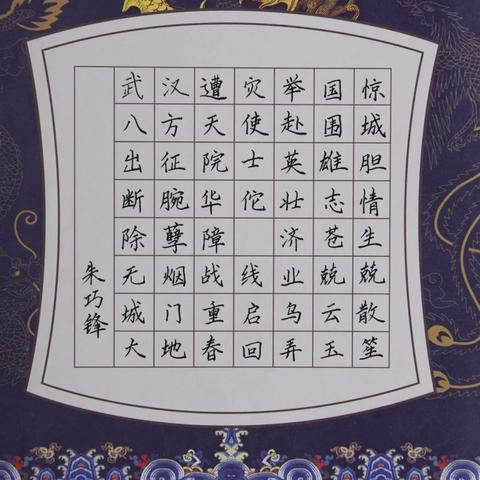 武汉遭灾举国惊
八方天使赴围城
出征院士英雄胆
断腕华佗壮志情
除孽障 济苍生
无烟战线业兢兢
城门重启乌云散
大地春回弄玉笙
朱巧锋